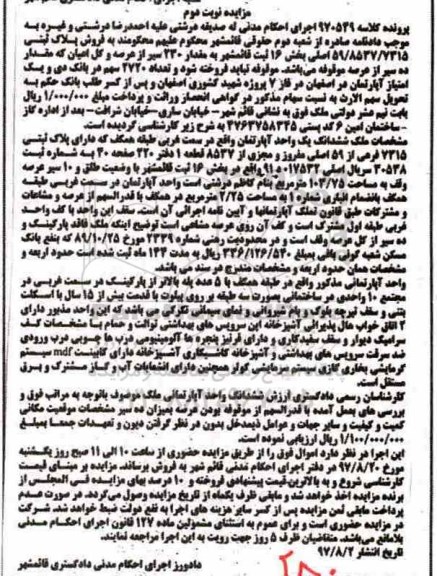 مزایده نوبت دوم
پرونده کلاسه ۹۷۰۵۴۹ اجرای احکام مدنی له صدیقه درشتی علیه احمدرضا درشتی و غیره به
موجب دادنامه صادره از شعبه دوم حقوقی قائمشهر محکوم علیهم محکومند به فروش پلاک ثبتی
۵۹/۸۵۳۷/۷۳۱۵ اصلی بخش ۱۶ ثبت قائمشهر به مقدار ۲۳۰ سیر از عرصه و کل اعیان که مقدار
ده سیر از عرصه موقوفه می‌باشد. موقوفه نباید فروخته شود و تعداد ۲۷۲۰ سهم در بانک دی و یک
امتیاز آپارتمان در اصفهان در فاز ۷ پروژه شهید کشوری اصفهان و پس از کسر طلب بانک حکم به
تحویل سهم الارث به نسبت سهام مذکور در گواهی انحصار وراثت و پرداخت مبلغ ۱/۰۰۰/۰۰۰ ریال
بابت نیم عشر دولتی ملک فوق به نشانی قائم شهر – خیابان ساری – خیابان شرافت – بعد از اداره گاز
– ساختمان امین ۶ کد پستی ۴۷۶۳۷۵۸۳۴۵ به شرح زیر کارشناسی گردیده است.
مشخصات ملک ششدانگ یک واحد آپارتمان واقع در سمت غربی طبقه همکف که دارای پلاک ثبتی
۷۳۱۵ فرعی از ۵۹ اصلی مفروز و مجزی از ۸۵۳۷ قطعه ۱ دفتر ۲۲۰ صفحه ۴۰ به شماره ثبت
۳۰۵۳۸ سریال اصلی واقع در بخش ۱۶ ثبت قائمشهر با وضعیت طلق و ۱۰ سیر عرصه
وقف به مساحت ۱۰۴/۲۵ مترمربع بنام کاظم درشتی است واحد آپارتمان در سمت غربی طبقه
همکف بانضمام انباری به مساحت ۲/۲۵ مترمربع در همکف با قدرالسهم از عرصه و مشاعات
و مشترکات طبق قانون تملک آپارتمانها و آیین نامه اجرائی آن است. سقف این واحد با کف واحد
غربی طبقه اول مشترک است و کف آن روی عرصه مشاعی است توضیح اینکه ملک فاقد پارکینگ و
ده سیر از کل عرصه وقف است و در محدودیت رهنی شماره ۲۳۳۹ مورخ ۸۹/۱۰/۲۵ که بنفع بانک
مسکن شعبه کوثر بابل بمبلغ ۳۳۶/۱۲۶/۵۴۰ ریال به مدت ۱۴۴ ماه ثبت شده است حدود اربعه و
مشخصات همان حدود اربعه و مشخصات مندرج در سند می باشد.
واحد آپارتمانی مذکور واقع در طبقه همکف با ۵ عدد پله بالاتر از پارکینگ در سمت غربی در
مجتمع ۱۰ واحدی در ساختمانی بصورت سه طبقه بر روی پیلوت با قدمت بیش از ۱۵ سال با اسکلت
بتنی و سقف تیرچه بلوک و بام شیروانی و نمای سیمانی تگرگی می باشد که این واحد مذبور دارای
۲ اتاق خواب هال پذیرائی آشپزخانه این سرویس های بهداشتی توالت و حمام با مشخصات کف
سرامیک دیوار و سقف سفیدکاری و دارای قرنیز پنجره ها آلومینیومی درب ها چوبی درب ورودی
ضد سرقت سرویس های بهداشتی و آشپزخانه کاشیکاری آشپزخانه دارای کابینت mdf سیستم
گرمایشی بخاری گازی سیستم سرمایشی کولر همچنین دارای انشعابات آب و گاز مشترک و برق
مستقل است.
کارشناسان رسمی دادگستری ارزش ششدانگ واحد آپارتمانی ملک موصوف باتوجه به مراتب فوق و
بررسی های بعمل آمده با قدرالسهم از موقوفه بودن عرصه بمیزان ده سیر مشخصات موقعیت مکانی
کمیت و کیفیت و سایر جهات و عوامل ذیمدخل بدون در نظر گرفتن دیون و تعهدات جمعا بمبلغ
۱/۱۰۰/۰۰۰/۰۰۰ ریال ارزیابی نموده است.
این اجرا در نظر دارد اموال فوق را از طریق مزایده حضوری از ساعت ۱۰ الی ۱۱ صبح روز یکشنبه
مورخ ۹۷/۸/۲۰ در دفتر اجرای احکام مدنی قائم شهر به فروش برساند. مزایده بر مبنای قیمت
کارشناسی شروع و به بالاترین قیمت پیشنهادی فروخته و ۱۰ درصد بهای مزایده فی المجلس از
برنده مزایده اخذ خواهد شد و مابقی ظرف یکماه از تاریخ مزایده وصول می‌گردد. در صورت عدم
پرداخت مابقی ثمن مزایده پس از کسر سایر هزینه های اجرا به نفع دولت ضبط خواهد شد. شرکت
در مزایده حضوری است و برای عموم به استثنای مشمولین ماده ۱۲۷ قانون اجرای احکام مدنی
بلامانع می‌باشد. متقاضیان ظرف ۵ روز جهت رویت به این اجرا مراجعه نمایند.
تاریخ انتشار ۹۷/۸/۲
دادورز اجرای احکام مدنی دادگستری قائمشهر